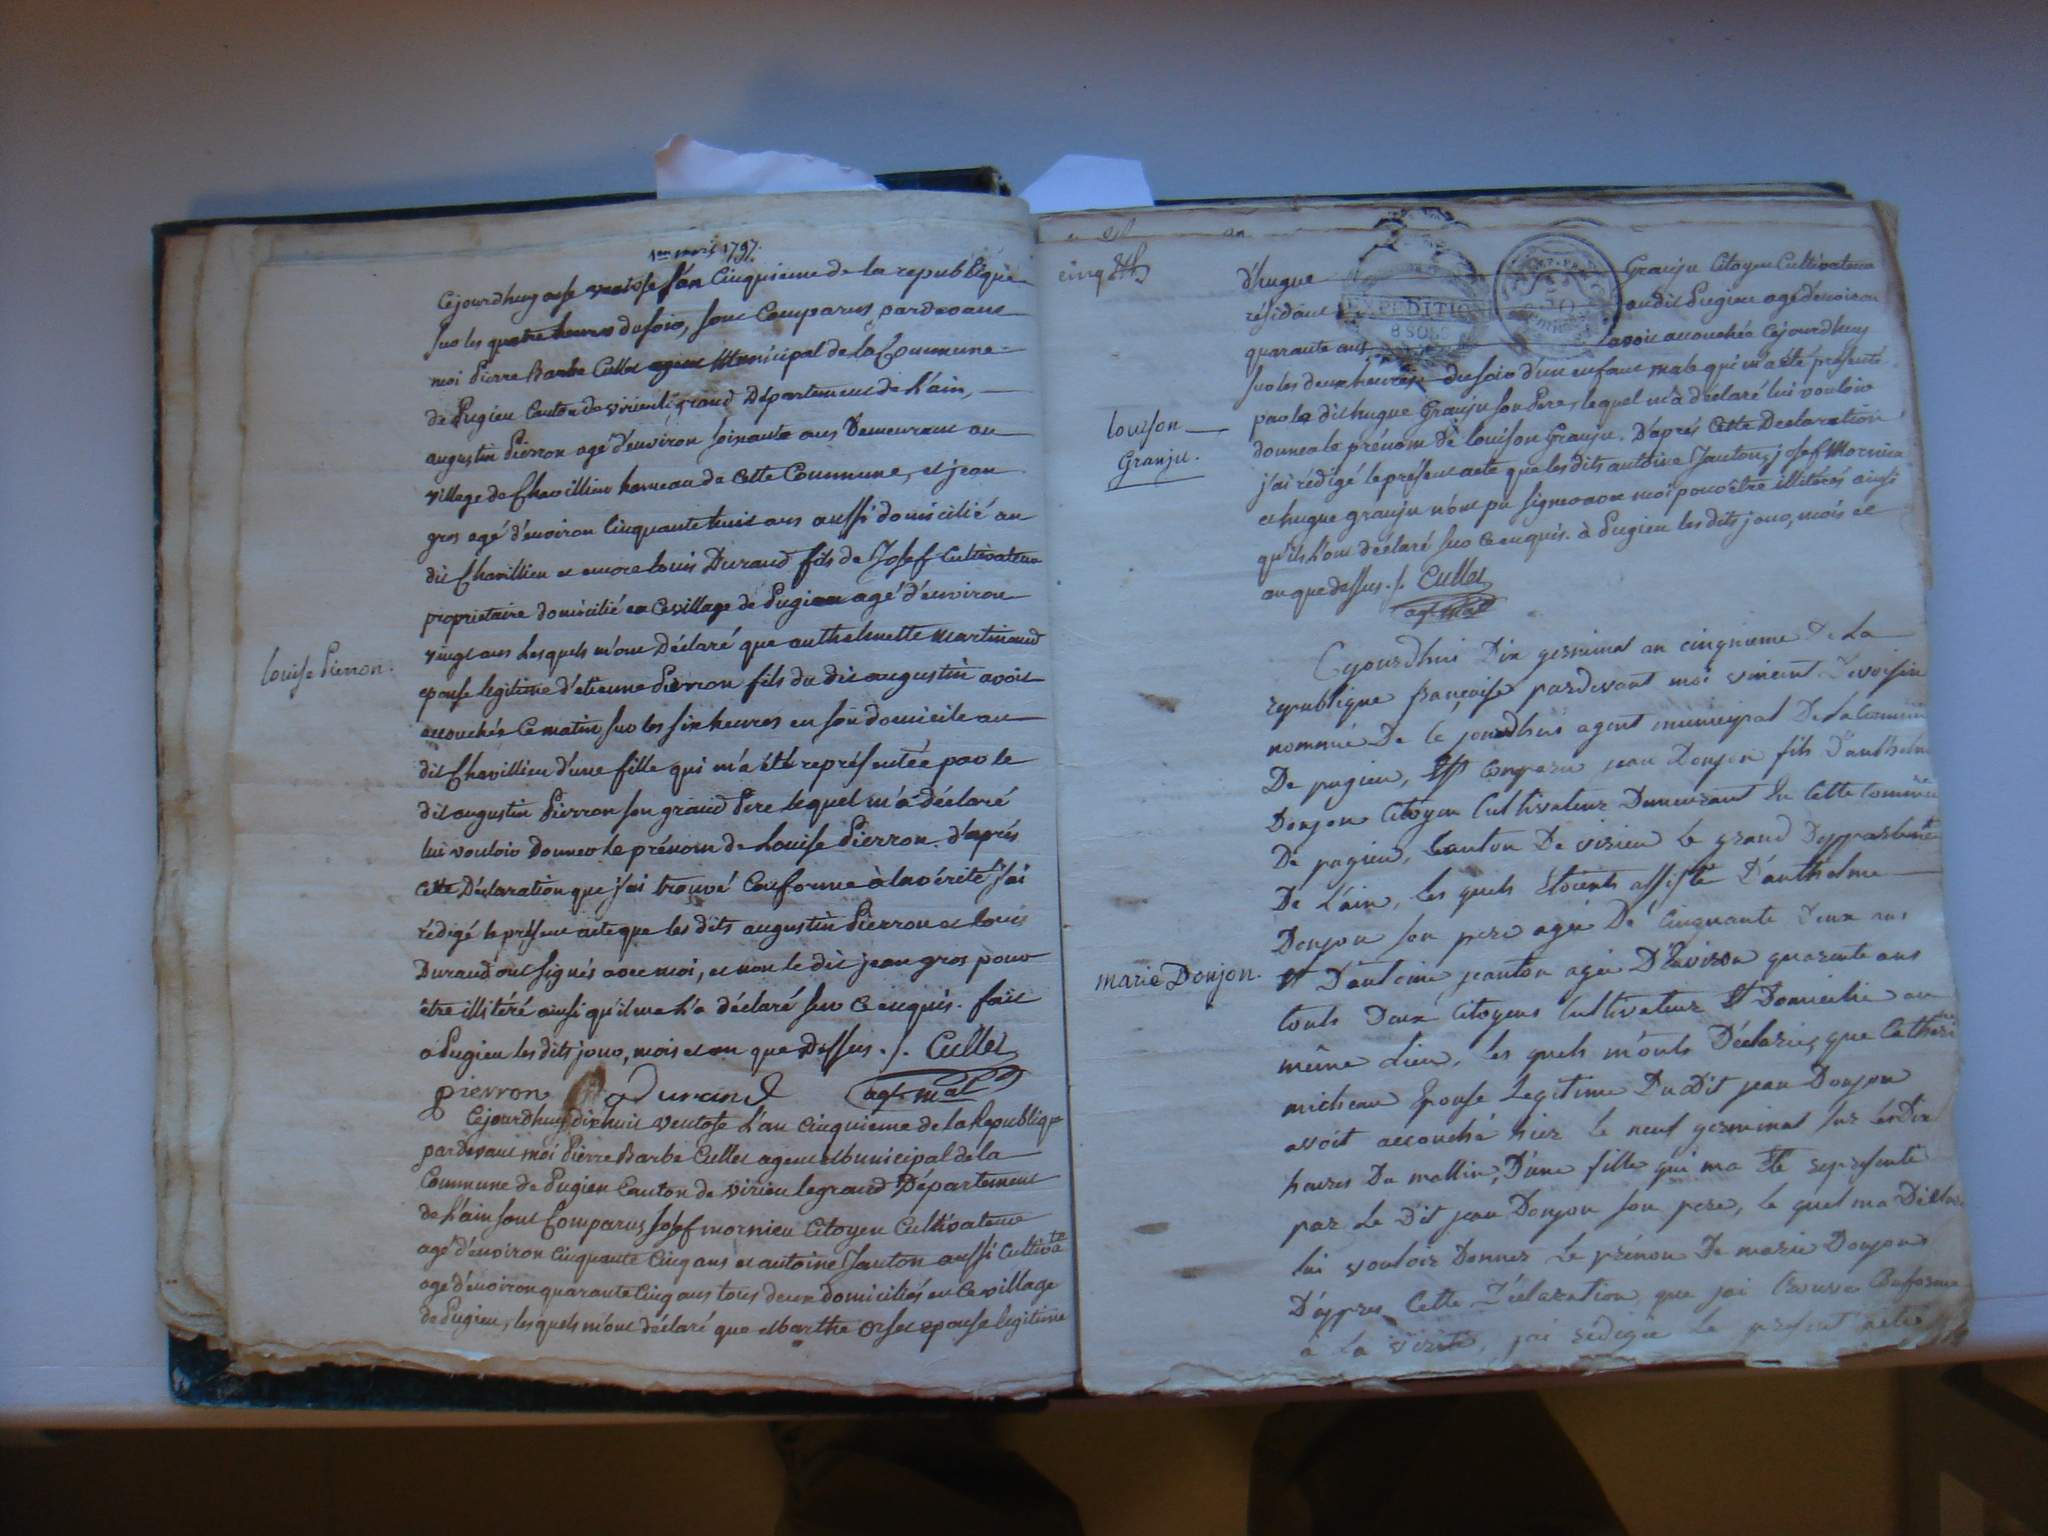 1er mars 1797.
Cejourdhuy onse ventose l'an Cinquieme de la republique
sur les quatre heures du soir, sont Comparus pardevant
moi Pierre Barbe Cullet agent Municipal de La Commune
de Pugieu Canton de virieu le grand Département de L'ain,
augustin Pierron agé d'environ soixante ans Demeurant au
village de Chavillieu hameau de cette Commune, et jean
gros agé d'environ Cinquante huit ans aussi domicilié au
dit Chavillieu et encore louis Durand fils de Josef Cultivateur
proprietaire domicilié en ce village de Pugieu agé d'environ
vingt ans Lesquels m'ont Déclaré que anthelmette Martinand
louise Pierron.
epouse legitime d'etienne Pierron fils du dit augustin avoit
accouchée Ce matin sur les six heures en son domicile au
dit Chavillieu d'une fille qui m'a été représentée par le
dit augustin Pierron son grand Pere lequel m'a déclaré
lui vouloir Donner le prénom de Louise Pierron. d'aprés
cette Déclaration que j'ai trouvé Conforme à la vérité j'ai
rédigé le présent acte que les dits augustin Pierron et louis
Durand ont signés avec moi, et non le dit jean gros pour
être illitéré ainsi qu'il me l'a déclaré sur ce enquis. fait
à Pugieu les dits jour, mois et an que Dessus ./. Cullet
pierron Durand agt. mal
Cejourdhuy dixhuit ventose L'an cinquieme de la Republique
pardevant moi Pierre Barbe Cullet agent Municipal de la
Commune de Pugieu Canton de virieu legrand Département
de L'ain sont Comparus Josef mornieu Citoyen Cultivateur
agé d'environ Cinquante Cinq ans et antoine Janton aussi Cultivatr
agé d'environ quarante Cinq ans tous deux domiciliés en ce village
de Pugieu, lesquels m'ont déclaré que Marthe orset epouse legitime
cinq
d'hugue Granju Citoyen Cultivateur
résidant au dit Pugieu agé d'environ
EXPEDITION
8 SOLS
quarante ans avoir accouchée Cejourdhuy
sur les deux heures du soir d'un enfant male qui m'a été présenté
par le dit hugue Granju son Pere, lequel m'a déclaré lui vouloir
louison
Granju.
donner le prénom de louison Granju. D'aprés Cette Declaration
j'ai rédigé le présent acte que les dits antoine Janton, josef Mornieu
et hugue granju n'ont pu signer avec moi pour être illitérés ainsi
qu'ils l'ont déclaré sur ce enquis. à Pugieu les dits jour, mois et
an que dessus ./. Cullet
agt. mal
Cejourdhui Dix germinal an cinquieme De La
republique françoise pardevant moi vincent
nommé De ce jourdhui agent municipal De la Commune
De pugieu, Est comparu jean Donjon fils D'anthelme
Donjon Citoyen Cultivateur Demeurant En Cette Commune
De pugieu, Canton De virieu Le grand Deppartement
De L'ain, Les quels Etoients assisté D'anthelme
Donjon son pere agée De Cinquante Deux ans
marie Donjon.
Et D'antoine janton agée D'Environ quarente ans
touts Deux Citoyens Cultivateur Et Domicilié au
même Lieu, Les quels m'onts Déclarée, que Catherine
micheau Epouse Legitime Dudit jean Donjon
avoit accouchée hier Le neuf germinal sur Les Dix
heures Du mattin, D'une fille qui ma Eté representé
par Le Dit jean Donjon son pere, Le quel ma Déclaré
lui vouloir Donner Le prénom De marie Donjon
D'eppres Cette Déclaration que jai trouvée Conforme
a La vérité, jai rédigée Le present acte